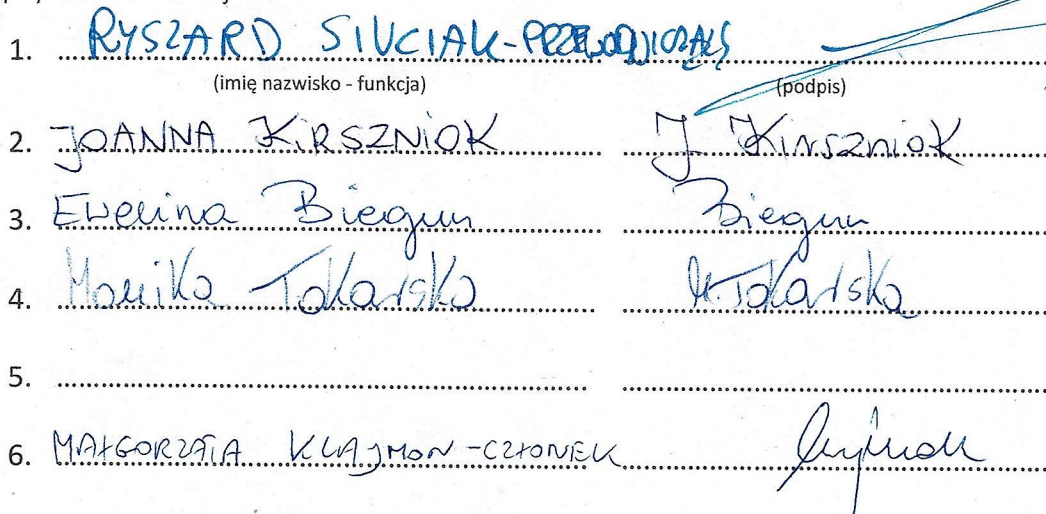 1. RYSZARD SIUCIAK - PRZEWODNICZĄCY
(imię nazwisko - funkcja) (podpis)
2. JOANNA KIRSZNIOK J. Kirszniok
3. Ewelina Biegun Biegun
4. Monika Tokarska M. Tokarska
5.
6. MAŁGORZATA KLAJMON - CZŁONEK